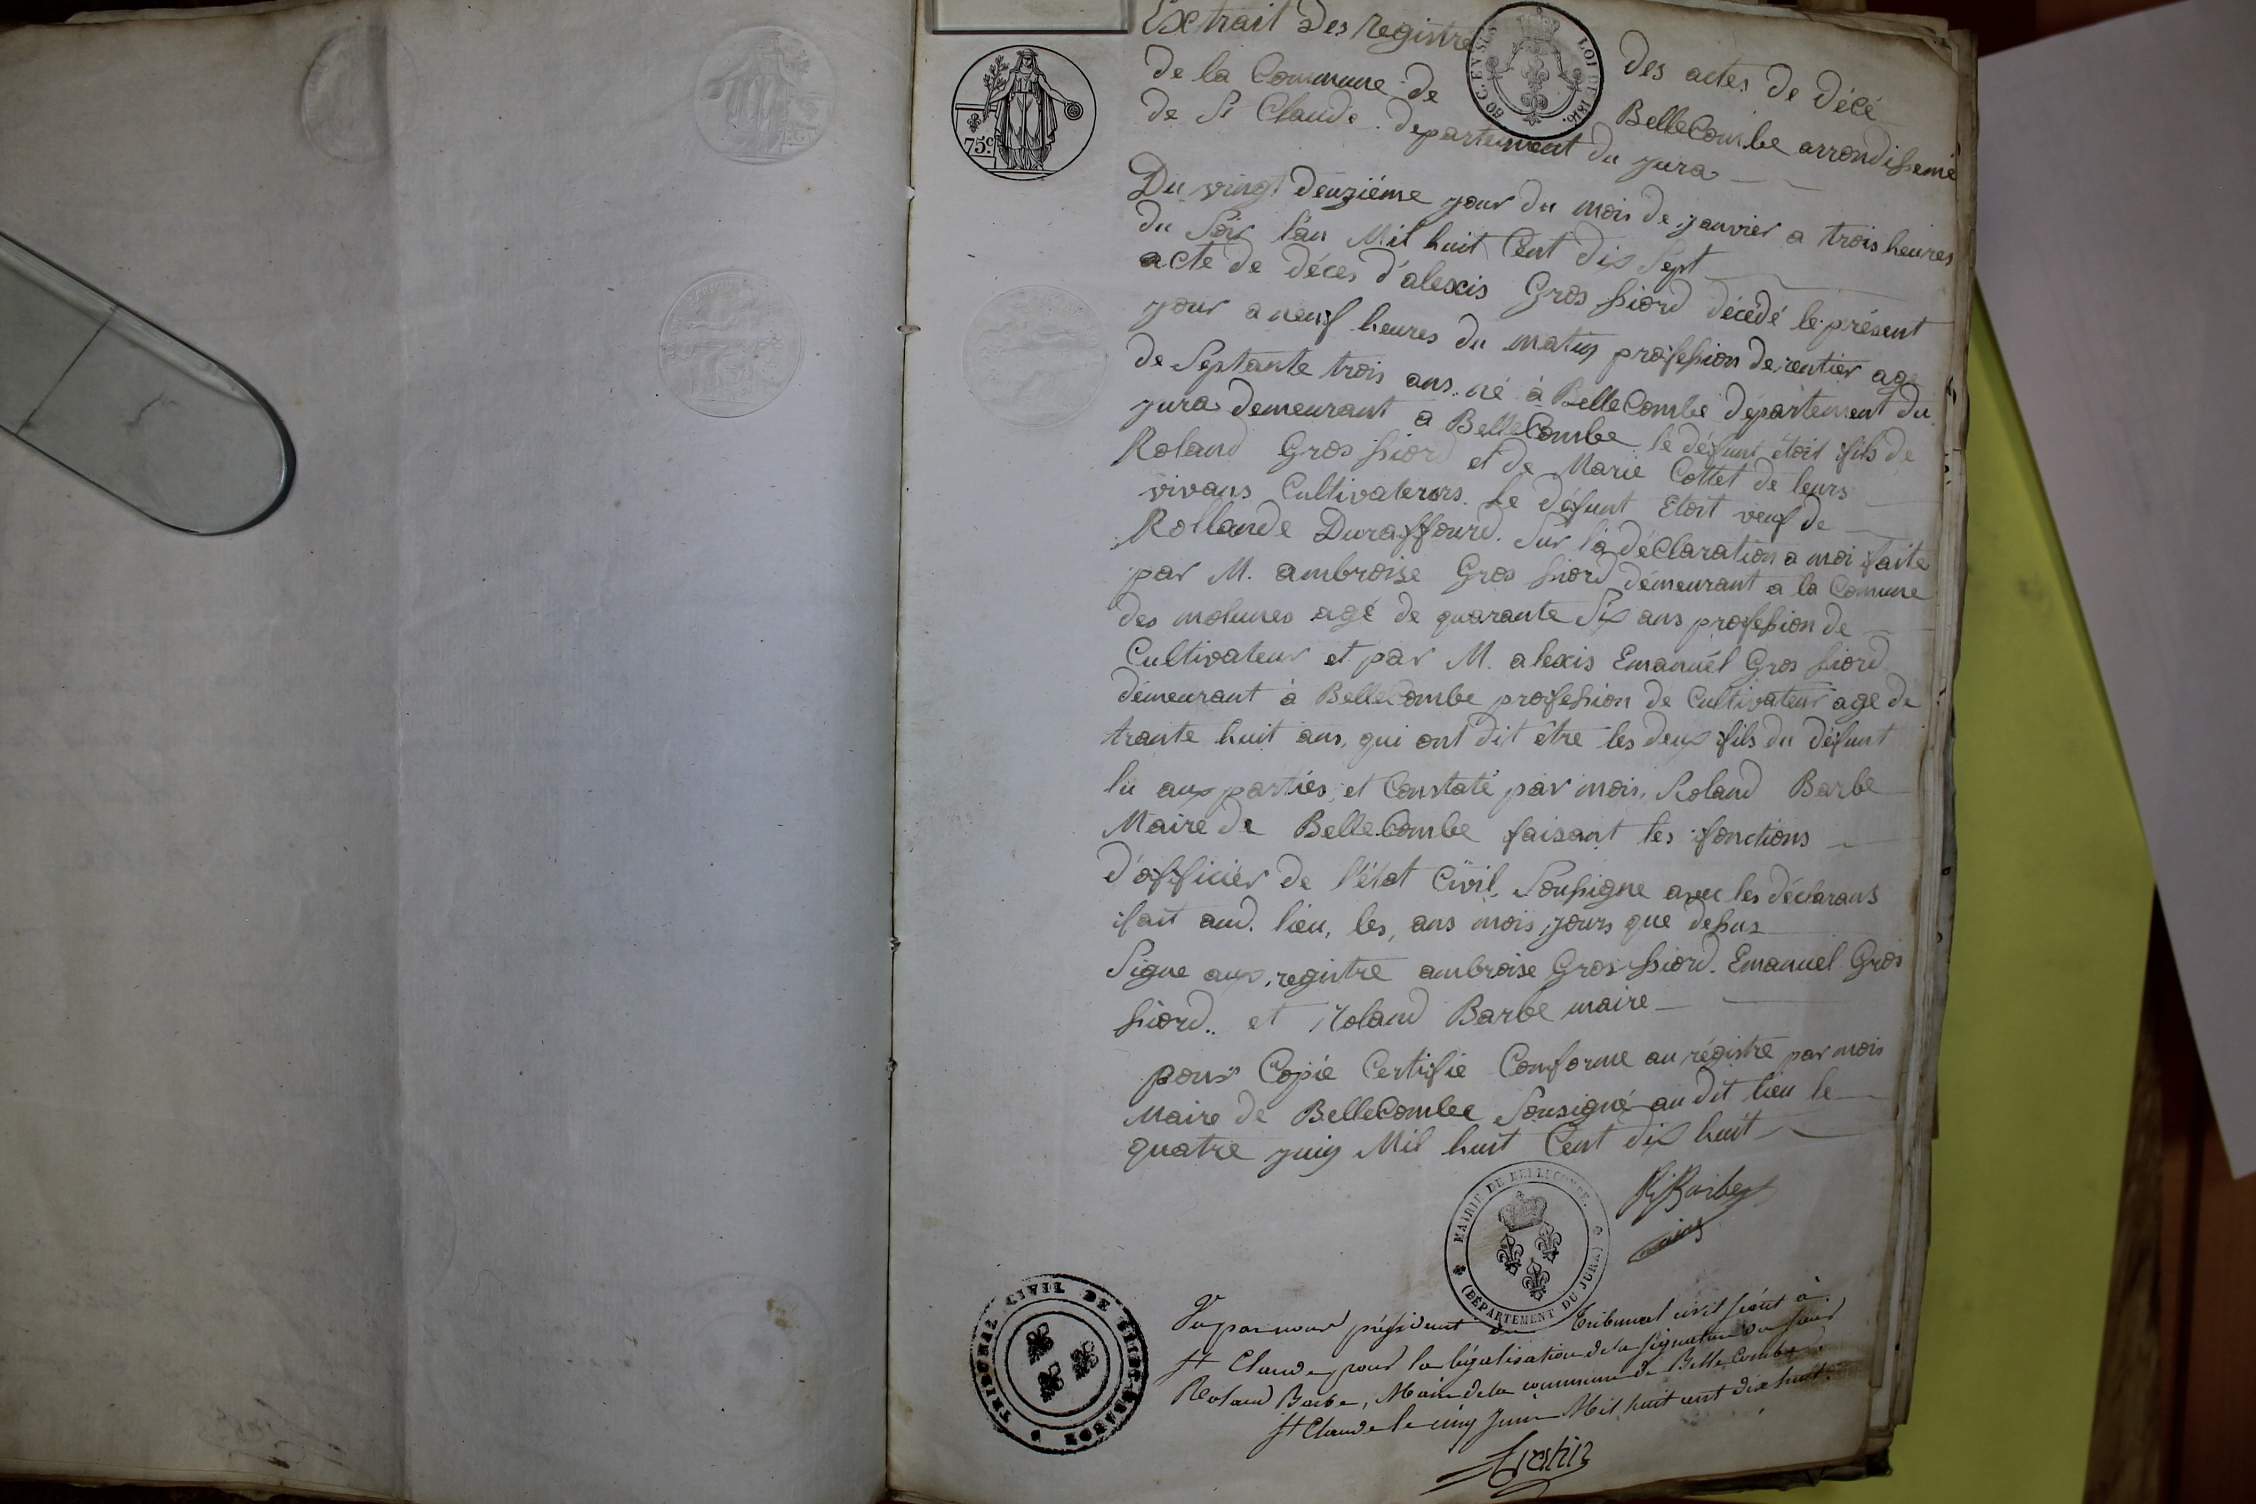 Extrait des registre des actes de décé
de la Commune de BelleCombe arrondissemē
de St Claude. departement du jura
Du vingt deuziéme jour du mois de janvier a trois heures
du Soir l'an Mil huit Cent dix Sept
acte de déces d'alexis Gros siord décédé le présent
jour a neuf heures du matin profession de rentier agé
de Septante trois ans. né à BelleCombe département du
jura demeurant a BelleCombe le défunt étoit fils de
Roland Gros siord et de Marie Cottet de leurs
vivans Cultivateurs. Le défunt Etoit veuf de
Rollande Duraffourd. Sur la déClaration a moi faite
par M. ambroise Gros siord démeurant a la Comune
des molunes agé de quarante Six ans profession de
Cultivateur et par M. alexis Emanuél Gros siord
démeurant à BelleCombe profession de Cultivateur age de
trante huit ans, qui ont dit être les deux fils du défunt
lu aux parties, et Constaté par mois, Roland Barbe
Maire de BelleCombe faisant les fonctions
d'officiér de l'état Civil, Soussigne avec les déclarans
fait aud. lieu, les, ans mois, jours que dessus
Signe aux, registre ambroise Gros siord. Emanuel Gros
siord.. et Roland Barbe maire
pour Copié Certifié Conforme au régistre par mois
Maire de BelleCombe Sousigné au dit lieu le
quatre juin Mil huit Cent dix huit
R. Barbe
maire
Vu par nous président du Tribunal civil séant à
St Claude pour la légalisation de la signature du sieur
Roland Barbe, Maire de la commune de Bellecombe.
St Claude le cinq Juin Mil huit cent dix huit.
75c.
EN SUS
LOI DE 1816.
MAIRIE DE BELLECOMBE.
(DÉPARTEMENT DU JURA)
TRIBUNAL CIVIL DE